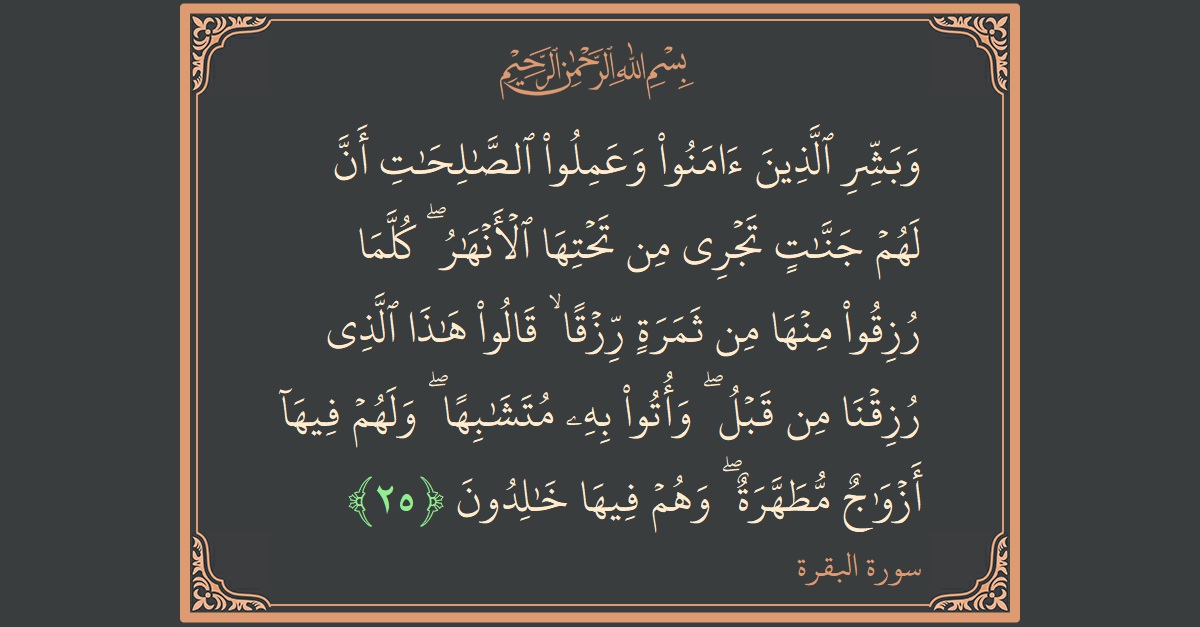 بِسْمِ ٱللَّهِ ٱلرَّحْمَٰنِ ٱلرَّحِيمِ
وَبَشِّرِ ٱلَّذِينَ ءَامَنُوا۟ وَعَمِلُوا۟ ٱلصَّـٰلِحَـٰتِ أَنَّ
لَهُمْ جَنَّـٰتٍ تَجْرِى مِن تَحْتِهَا ٱلْأَنْهَـٰرُ ۖ كُلَّمَا
رُزِقُوا۟ مِنْهَا مِن ثَمَرَةٍ رِّزْقًا ۙ قَالُوا۟ هَـٰذَا ٱلَّذِى
رُزِقْنَا مِن قَبْلُ ۖ وَأُتُوا۟ بِهِۦ مُتَشَـٰبِهًا ۖ وَلَهُمْ فِيهَآ
أَزْوَٰجٌ مُّطَهَّرَةٌ ۖ وَهُمْ فِيهَا خَـٰلِدُونَ ﴿٢٥﴾
سورة البقرة